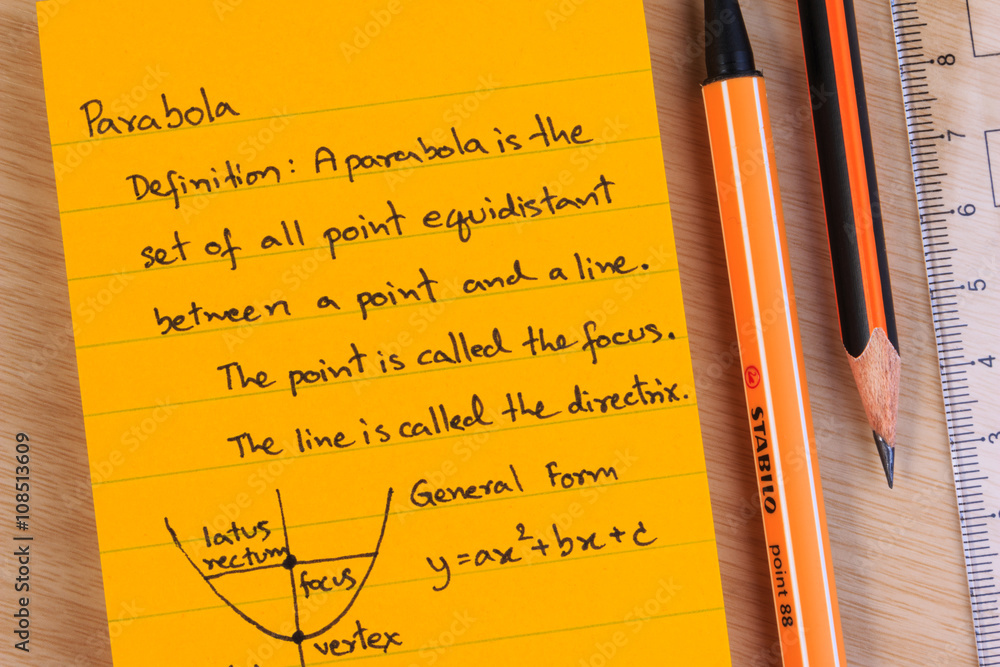 Parabola
Definition: A parabola is the
set of all point equidistant
between a point and a line.
The point is called the focus.
The line is called the directrix.
General Form
y=ax²+bx+c
latus
rectum
focus
vertex
STABILO
point 88
8
7
6
5
4
3
2
1
Adobe Stock | #108513609